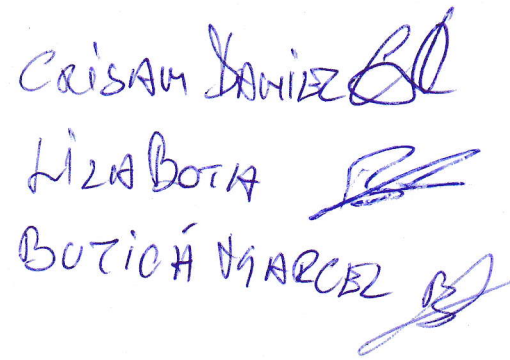 CRISAN DANIEL
LIZA BOTA
BUTICĂ MARCEL